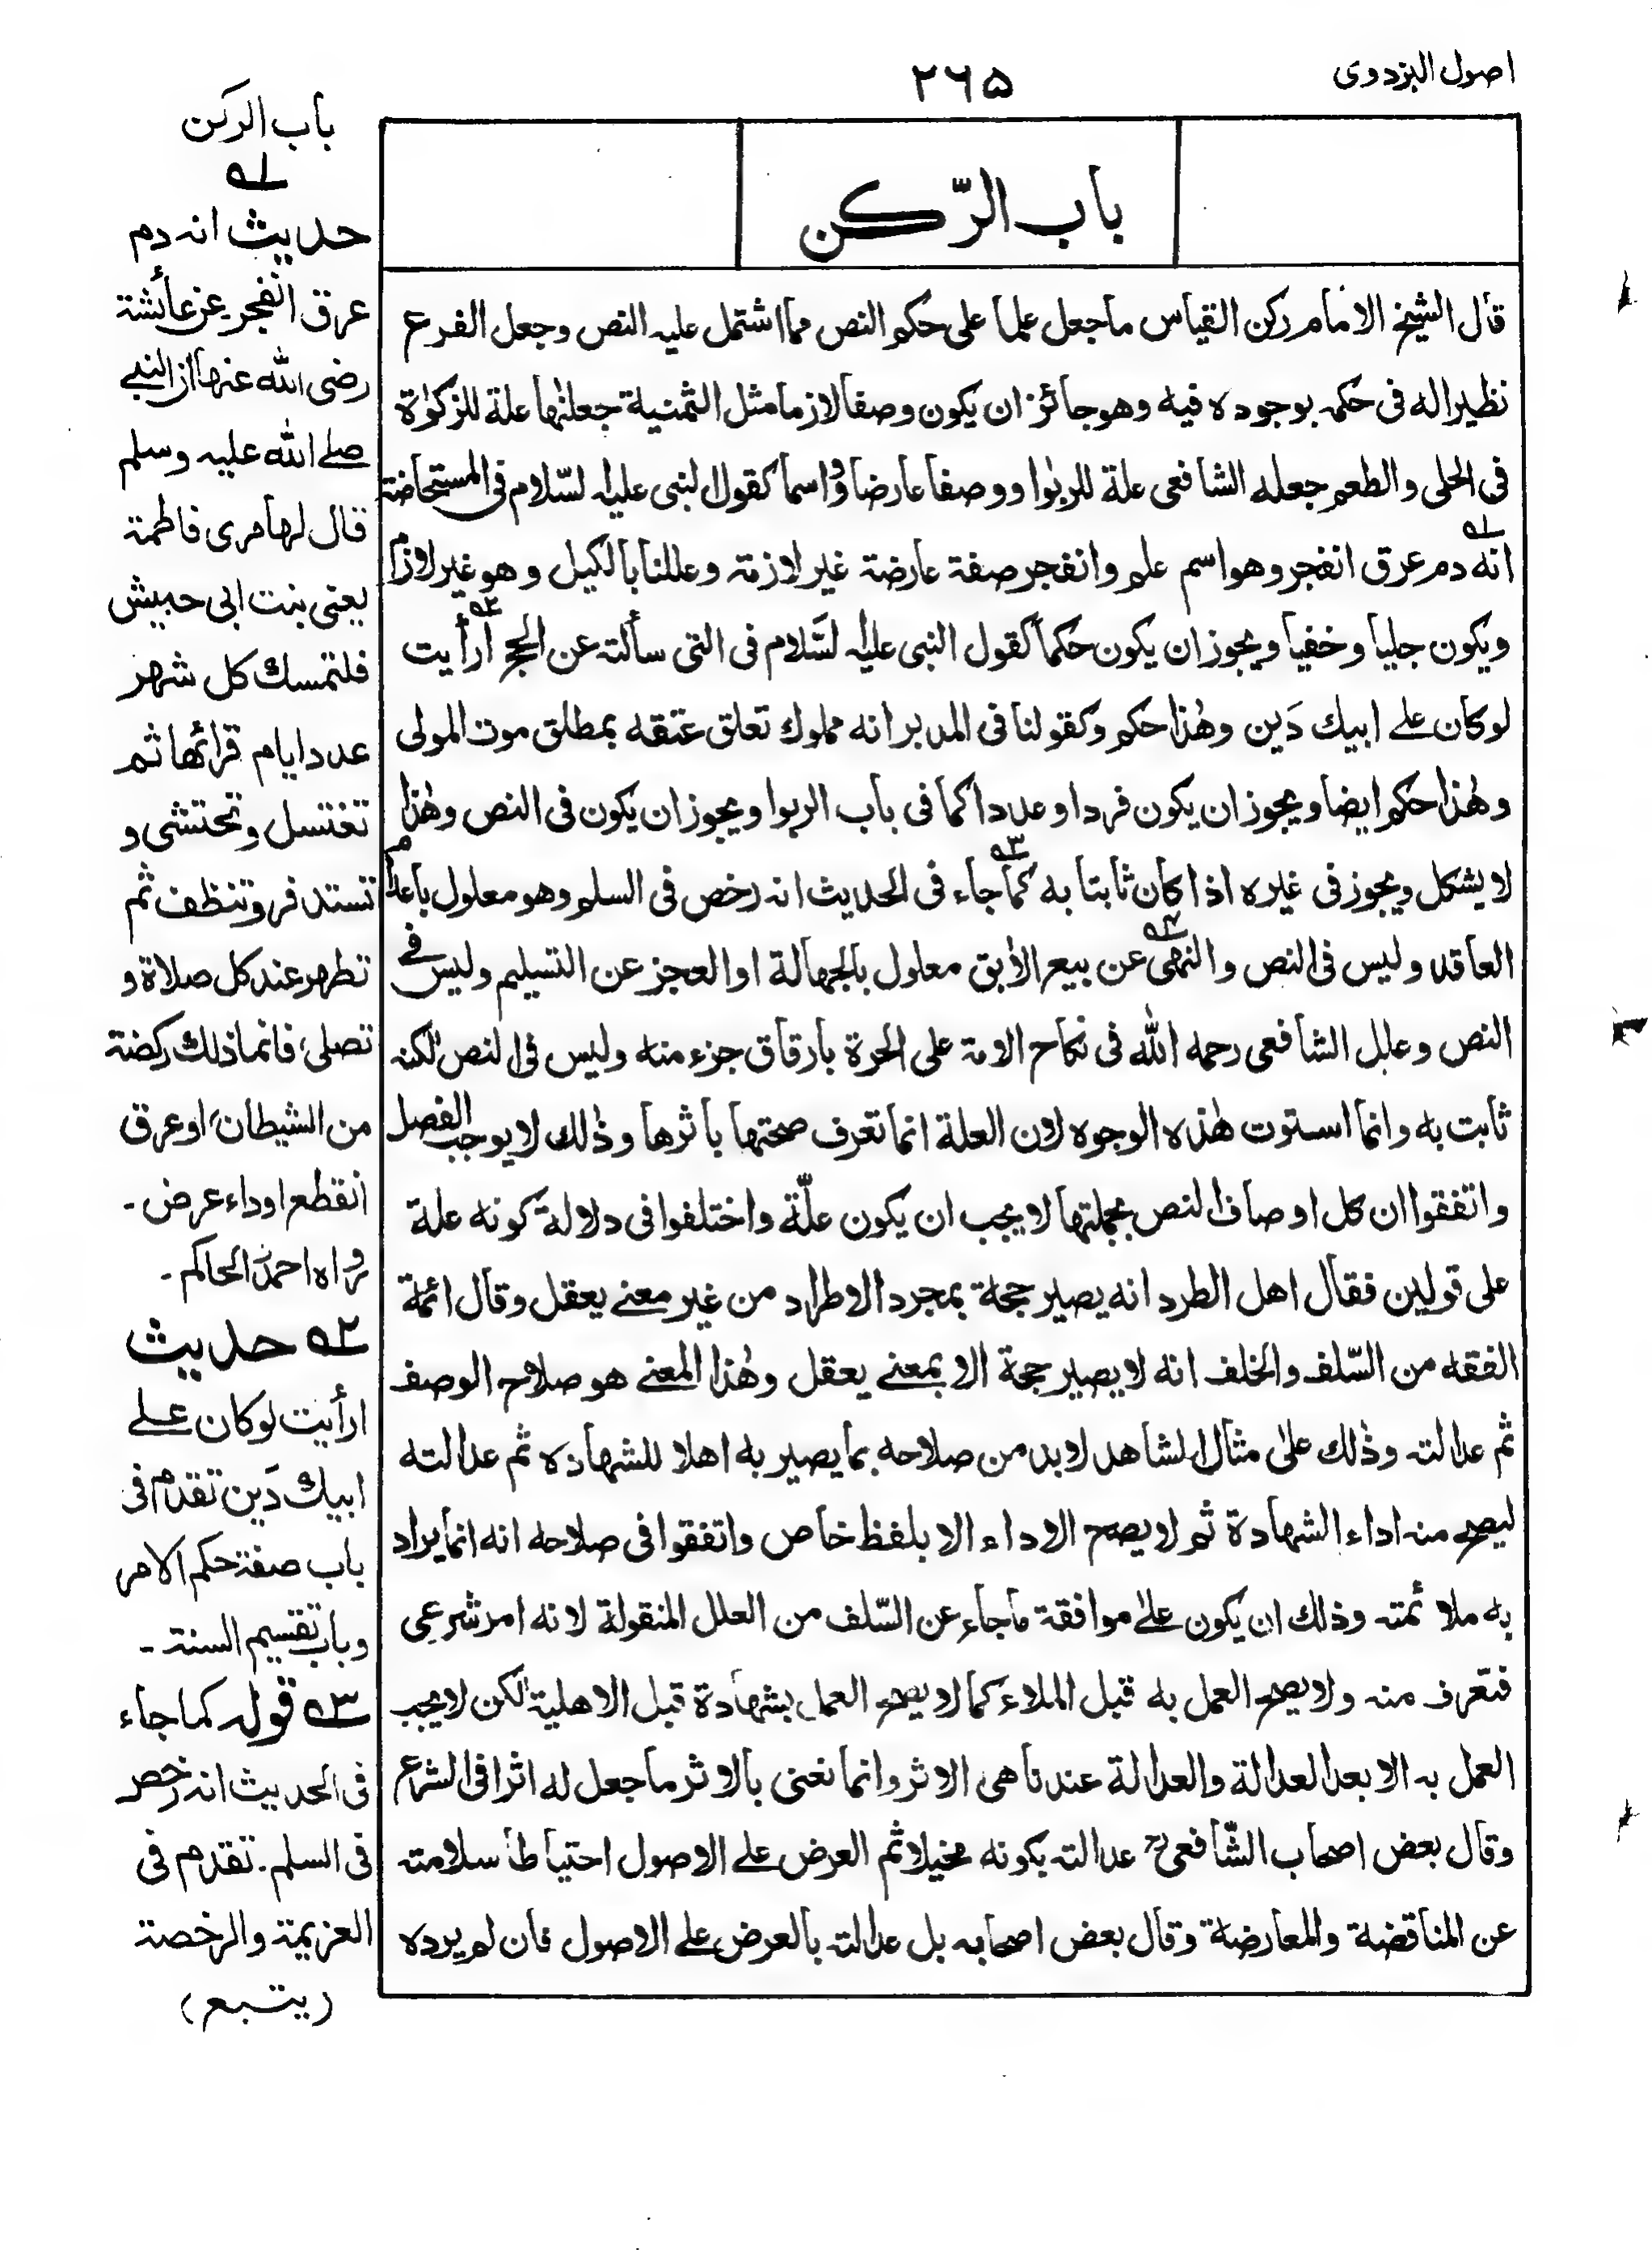 اصول البزدوی
۲۶۵
باب الرّكن
قال الشيخ الامام ركن القياس ماجعل علما على حكم النص مما اشتمل عليه النص وجعل الفرع
نظيرا له فى حكمه بوجوده فيه وهو جائز ان يكون وصفا لازما مثل الثمنية جعلنٰها علة للزكوٰة
فى الحلى والطعم جعله الشافعى علة للربٰوا ووصفا عارضا واسما كقول النبى عليه السّلام فى المستحاضة
انه دم عرق انفجر وهو اسم علم وانفجر صفة عارضة غير لازمة وعللنا بالكيل وهو غير لازم
ويكون جليا وخفيا ويجوز ان يكون حكما كقول النبى عليه السَّلام فى التى سألته عن الحج ارأيت
لوكان على ابيك دَين وهٰذا حكم وكقولنا فى المدبر انه مملوك تعلق عتقه بمطلق موت المولى
وهٰذا حكم ايضا ويجوز ان يكون فردا وعددا كما فى باب الربوا ويجوز ان يكون فى النص وهٰذا
لا يشكل ويجوز فى غيره اذا كان ثابتا به كما جاء فى الحديث انه رخص فى السلم وهو معلول باعدام
العاقد وليس فى النص والنهى عن بيع الآبق معلول بالجهالة او العجز عن التسليم وليس فى
النص وعلل الشافعى رحمه الله فى نكاح الامة على الحرة بارقاق جزء منه وليس فى النص لٰكنه
ثابت به وانما استوت هٰذه الوجوه لان العلة انما تعرف صحتها باثرها وذٰلك لا يوجب الفصل
واتفقوا ان كل اوصاف النص بجملتها لا يجب ان يكون علّة واختلفوا فى دلالة كونه علة
على قولين فقال اهل الطرد انه يصير حجة بمجرد الاطراد من غير معنى يعقل وقال ائمة
الفقه من السّلف والخلف انه لا يصير حجة الا بمعنى يعقل وهٰذا المعنى هو صلاح الوصف
ثم عدالته وذٰلك علىٰ مثال الشاهد لا بد من صلاحه بما يصير به اهلا للشهادة ثم عدالته
ليصح منه اداء الشهادة ثم لا يصح الاداء الا بلفظ خاص واتفقوا فى صلاحه انه انما يراد
به ملائمته وذلك ان يكون علىٰ موافقة ما جاء عن السّلف من العلل المنقولة لانه امر شرعى
فتعرف منه ولا يصح العمل به قبل الملاء كما لا يصح العمل بشهادة قبل الاهلية لٰكن لا يجب
العمل به الا بعد العدالة والعدالة عندنا هى الاثر وانما نعنى بالاثر ما جعل له اثرا فى الشرع
وقال بعض اصحاب الشّافعى ؒ عدالته بكونه مخيلا ثم العرض على الاصول احتياطا سلامته
عن المناقضة والمعارضة وقال بعض اصحابه بل عدالته بالعرض على الاصول فان لم يرده
باب الركن
۱ه
حديث انه دم
عرق انفجر عن عائشة
رضى الله عنها ان النبى
صلى الله عليه وسلم
قال لها مرى فاطمة
يعنى بنت ابى حبيش
فلتمسك كل شهر
عدد ايام قرائها ثم
تغتسل وتحتشى و
تستذفر وتنظف ثم
تطهر عند كل صلاة و
تصلى، فانما ذلك ركضة
من الشيطان، او عرق
انقطع او داء عرض۔
رواه احمد والحاكم۔
۲ه حديث
ارأيت لوكان على
ابيك دَين تقدم فى
باب صفة حكم الامر
وباب تقسيم السنة۔
۳ه قوله كما جاء
فى الحديث انه رخص
فى السلم. تقدم فى
العزيمة والرخصة
(يتبع)